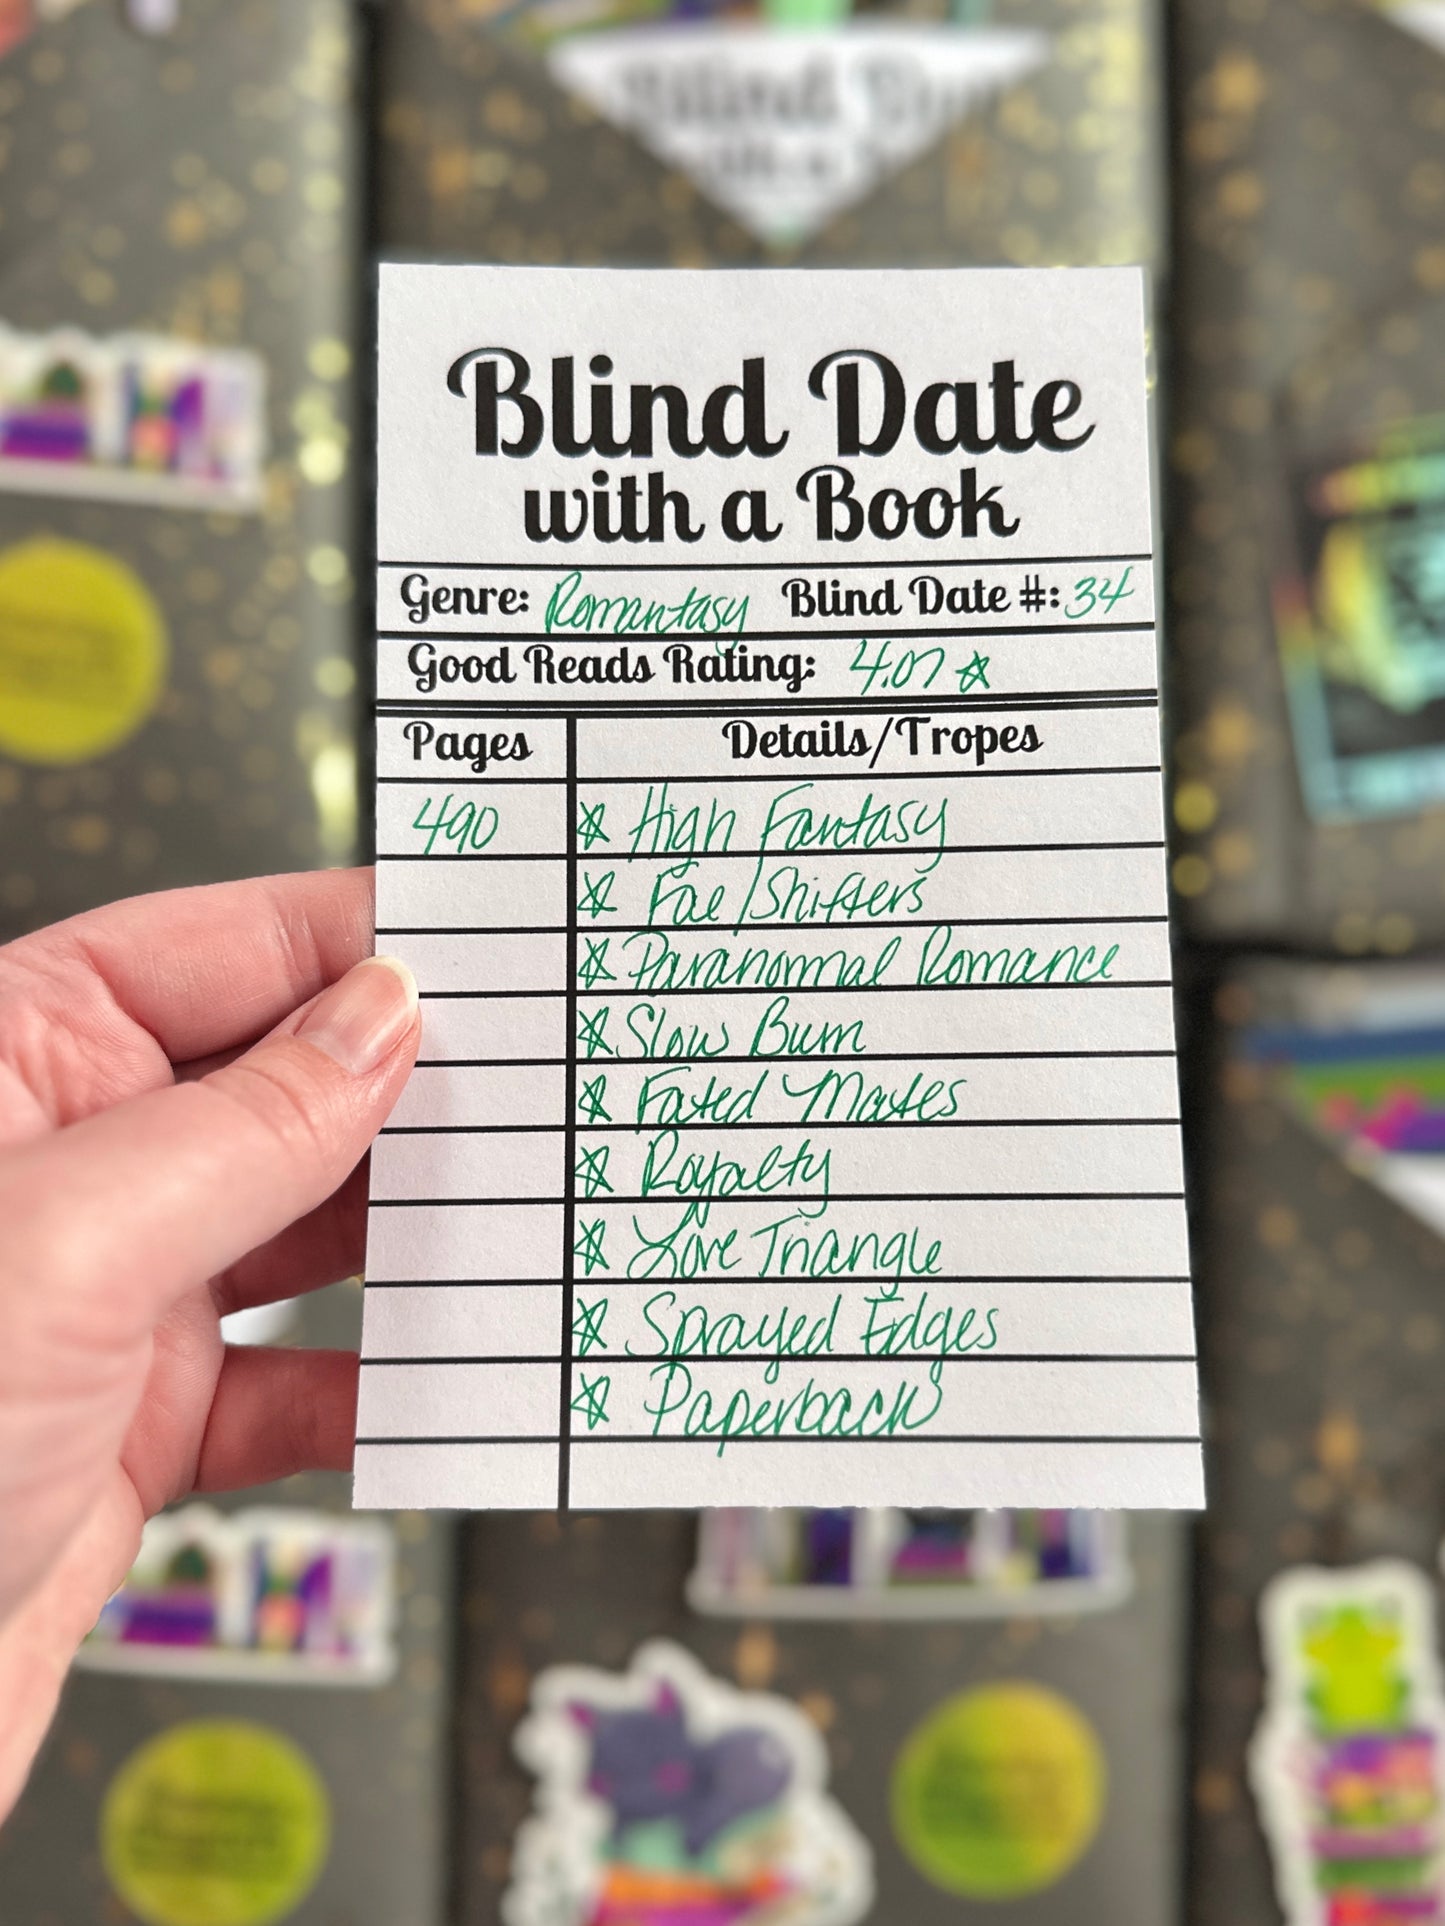 Blind Date
with a Book
Genre: Romantasy Blind Date #: 34
Good Reads Rating: 4.07 ☆
Pages Details/Tropes
490 ☆ High Fantasy
☆ Fae/Shifters
☆ Paranormal Romance
☆ Slow Burn
☆ Fated Mates
☆ Royalty
☆ Love Triangle
☆ Sprayed Edges
☆ Paperback
Blind